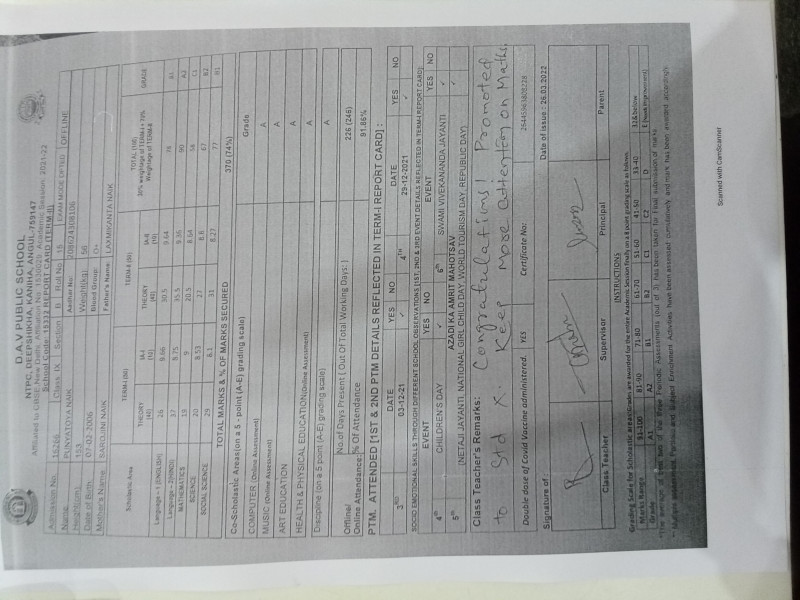 D.A.V PUBLIC SCHOOL
NTPC, DEEPSHIKHA, KANIHA, ANGUL-759147
Affiliated to CBSE, New Delhi, Affiliation No: 1530029, Academic Session: 2021-22
School Code: 15332 REPORT CARD (TERM-II)
Admission No. Class IX Section B Roll No. 15 EXAM MODE OPTED OFFLINE
Name: PUNYATOYA NAIK Aadhar No:
Height(cm) 153 Weight(kg) 56
Date of Birth 07-02-2006 Blood Group: O+
Mother's Name SAROJINI NAIK Father's Name LAXMIKANTA NAIK
Scholastic Area TERM-I (50) TERM-II (50) TOTAL (100) GRADE
THEORY (40) IA-I (10) THEORY (40) IA-II (10)
Language - 1 (ENGLISH) 26 9.66 30.5 9.64 B1
Language - 2 37 9.75 35.5 9.36 90 A2
MATHEMATICS 19 9 20.5 8.64 58 C1
SCIENCE 20 8.53 27 8.8 67 B2
SOCIAL SCIENCE 29 31 8.27 77 B1
TOTAL MARKS & % OF MARKS SECURED 370 (74%)
Co-Scholastic Areas(on a 5 - point (A-E) grading scale) Grade
COMPUTER (Online Assessment) A
MUSIC (Online Assessment) A
ART EDUCATION A
HEALTH & PHYSICAL EDUCATION(Online Assessment) A
Discipline (on a 5 point (A-E) grading scale) A
Offline/ No.of Days Present [ Out Of Total Working Days: ] 226 (246)
Online Attendance: % Of Attendance 91.86%
PTM. ATTENDED [1ST & 2ND PTM DETAILS REFLECTED IN TERM-I REPORT CARD] :
DATE YES NO DATE YES NO
3rd 03-12-21 ✓ 4th 29-12-2021 ✓
SOCIO EMOTIONAL SKILLS THROUGH DIFFERENT SCHOOL OBSERVATIONS [1ST, 2ND & 3RD EVENT DETAILS REFLECTED IN TERM-I REPORT CARD]:
EVENT YES NO EVENT YES NO
4th CHILDREN'S DAY ✓ 6th SWAMI VIVEKANANDA JAYANTI ✓
5th AZADI KA AMRIT MAHOTSAV ✓
(NETAJI JAYANTI, NATIONAL GIRL CHILD DAY, WORLD TOURISM DAY, REPUBLIC DAY)
Class Teacher's Remarks: Congratulations! Promoted
to Std X. Keep more attention on Maths.
Double dose of Covid Vaccine administered. YES Certificate No: 26445963808228
Signature of Date of issue : 26.03.2022
Class Teacher Supervisor Principal Parent
INSTRUCTIONS
Grading Scale for Scholastic areas:Grades are awarded for the entire Academic Session finally on a 8 point grading scale as follows
Marks Range 91-100 81-90 71-80 61-70 51-60 41-50 33-40 32&below
Grade A1 A2 B1 B2 C1 C2 D E (Needs Improvement)
*The average of best two of the three Periodic Assessments (out of 5) has been taken for Final submission of marks
** Multiple assessment, Portfolio and Subject Enrichment Activities have been assessed cumulatively and mark has been awarded accordingly
Scanned with CamScanner